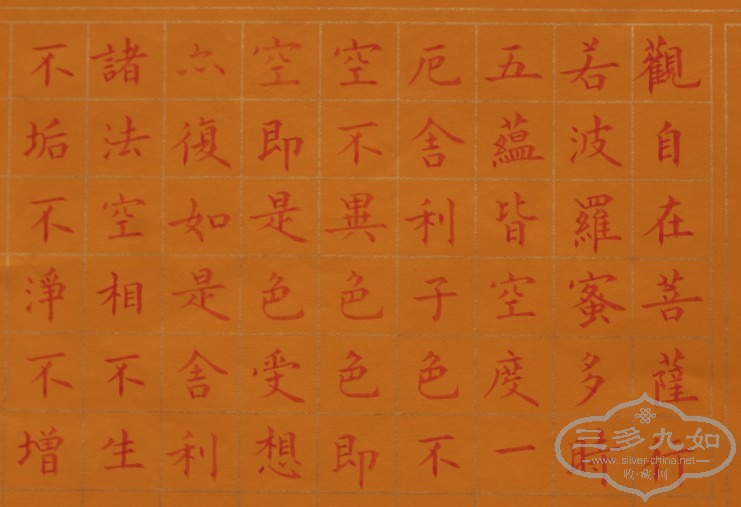 觀自在菩薩行
若波羅蜜多時
五蘊皆空度一
厄舍利子色不
空不異色色即
空即是色受想
亦復如是舍利
諸法空相不生
不垢不淨不增
三多九如
www.silver-china.net
收·藏·网